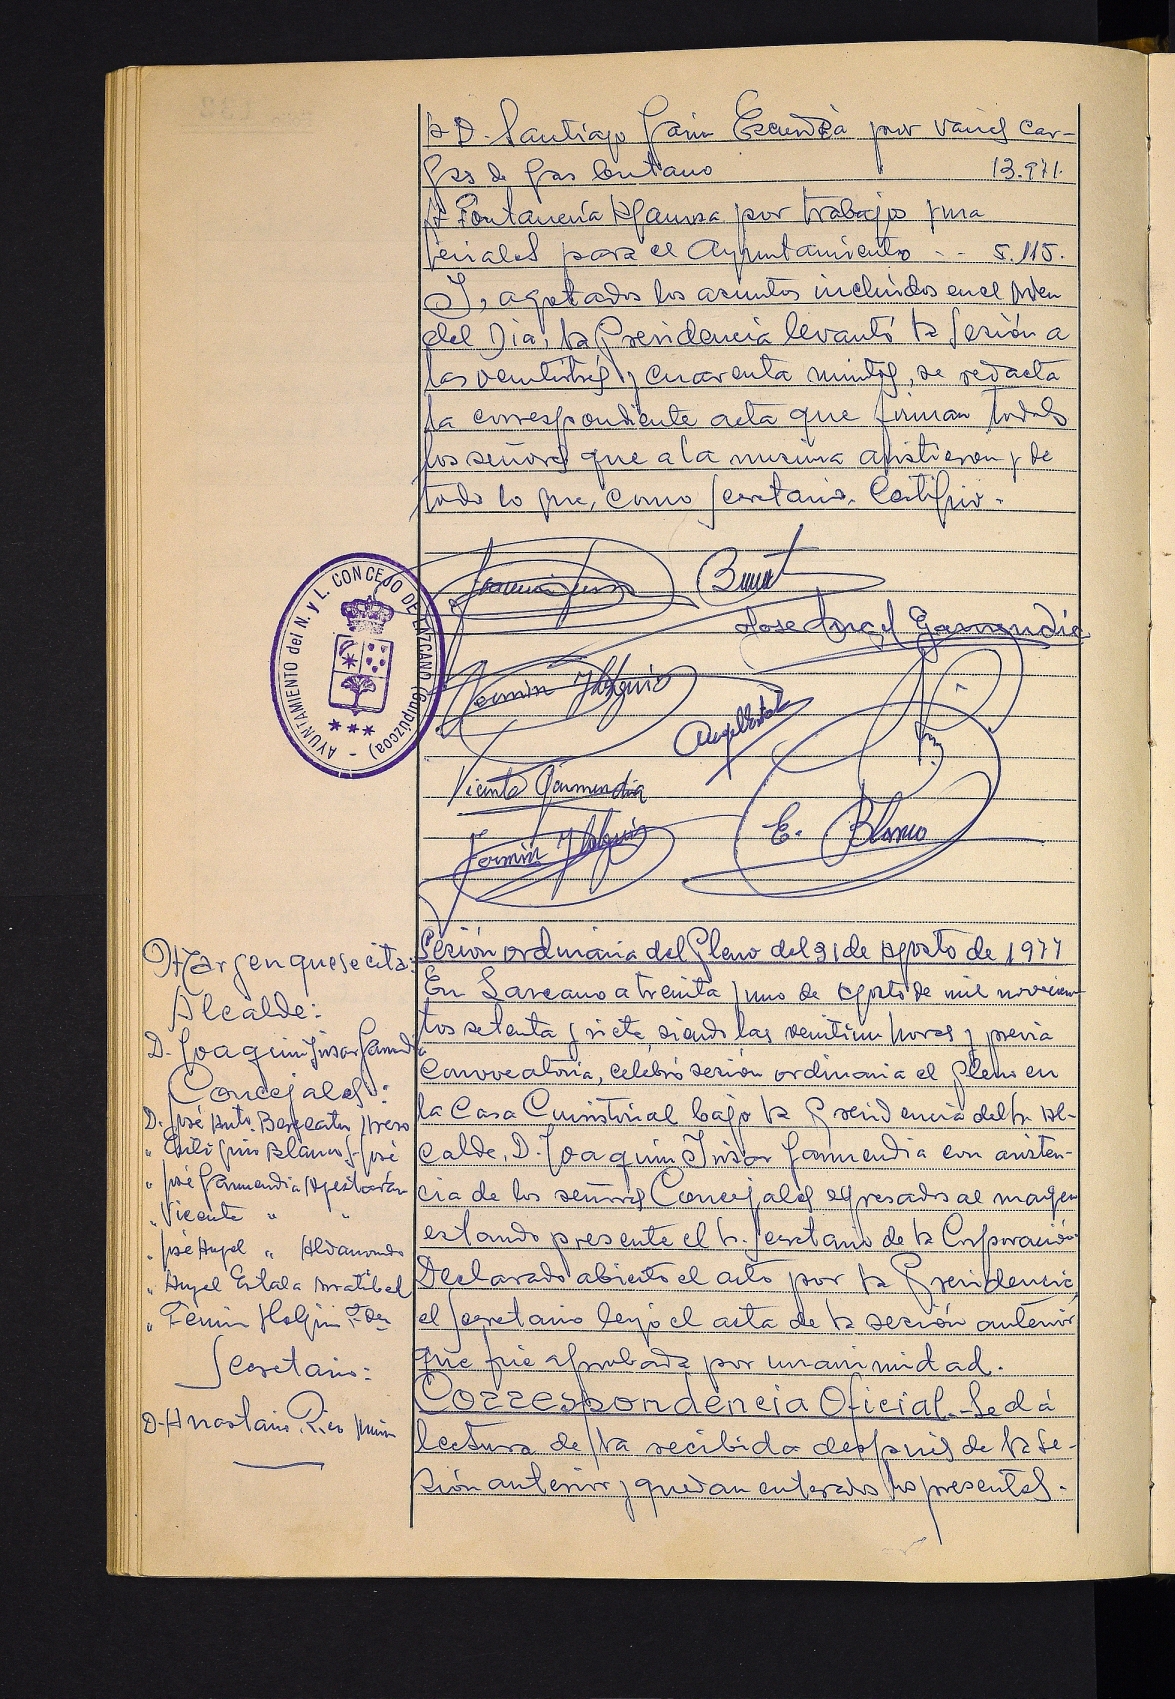 A D. Santiago Garin Escudía por varias car-
gas de gas butano 13.971.
A Fontanería por trabajo y ma
teriales para el Ayuntamiento - - 5.115.
Y, agotados los asuntos incluidos en el orden
del Dia, la Presidencia levantó la sesión a
las veintitrés y cuarenta minutos, se redacta
la correspondiente acta que firman todos
los señores que a la misma asistieron y de
todo lo que, como Secretario. Certifico.
AYUNTAMIENTO del N. y L. CONCEJO DE LAZCANO (Guipúzcoa)
José Angel Garmendia
Fermin Holguin
Angel Estala
Vicente Garmendia
E. Blanco
Fermin Holguin
Sesión ordinaria del Pleno del 31 de Agosto de 1977
Margen que se cita:
Alcalde:
D. Joaquin Insar Garmendia
Concejales:
D. José Anto.
" Blanco
" José Garmendia
" Vicente " "
" José Angel "
" Angel Estala Arratibel
" Fermin Holguin
Secretario:
D. Anastasio Rico
En Lazcano a treinta y uno de Agosto de mil novecien-
tos setenta y siete, siendo las veintiun horas y previa
convocatoria, celebró sesión ordinaria el Pleno en
la Casa Consistorial bajo la Presidencia del Sr. Al-
calde, D. Joaquin Insar Garmendia con asisten-
cia de los señores Concejales expresados al margen
estando presente el Sr. Secretario de la Corporación.
Declarado abierto el acto por la Presidencia,
el Secretario leyó el acta de la sesión anterior
que fue aprobada por unanimidad.
Correspondencia Oficial.- Se dá
lectura de la recibida después de la Se-
sión anterior y quedan enterados los presentes.